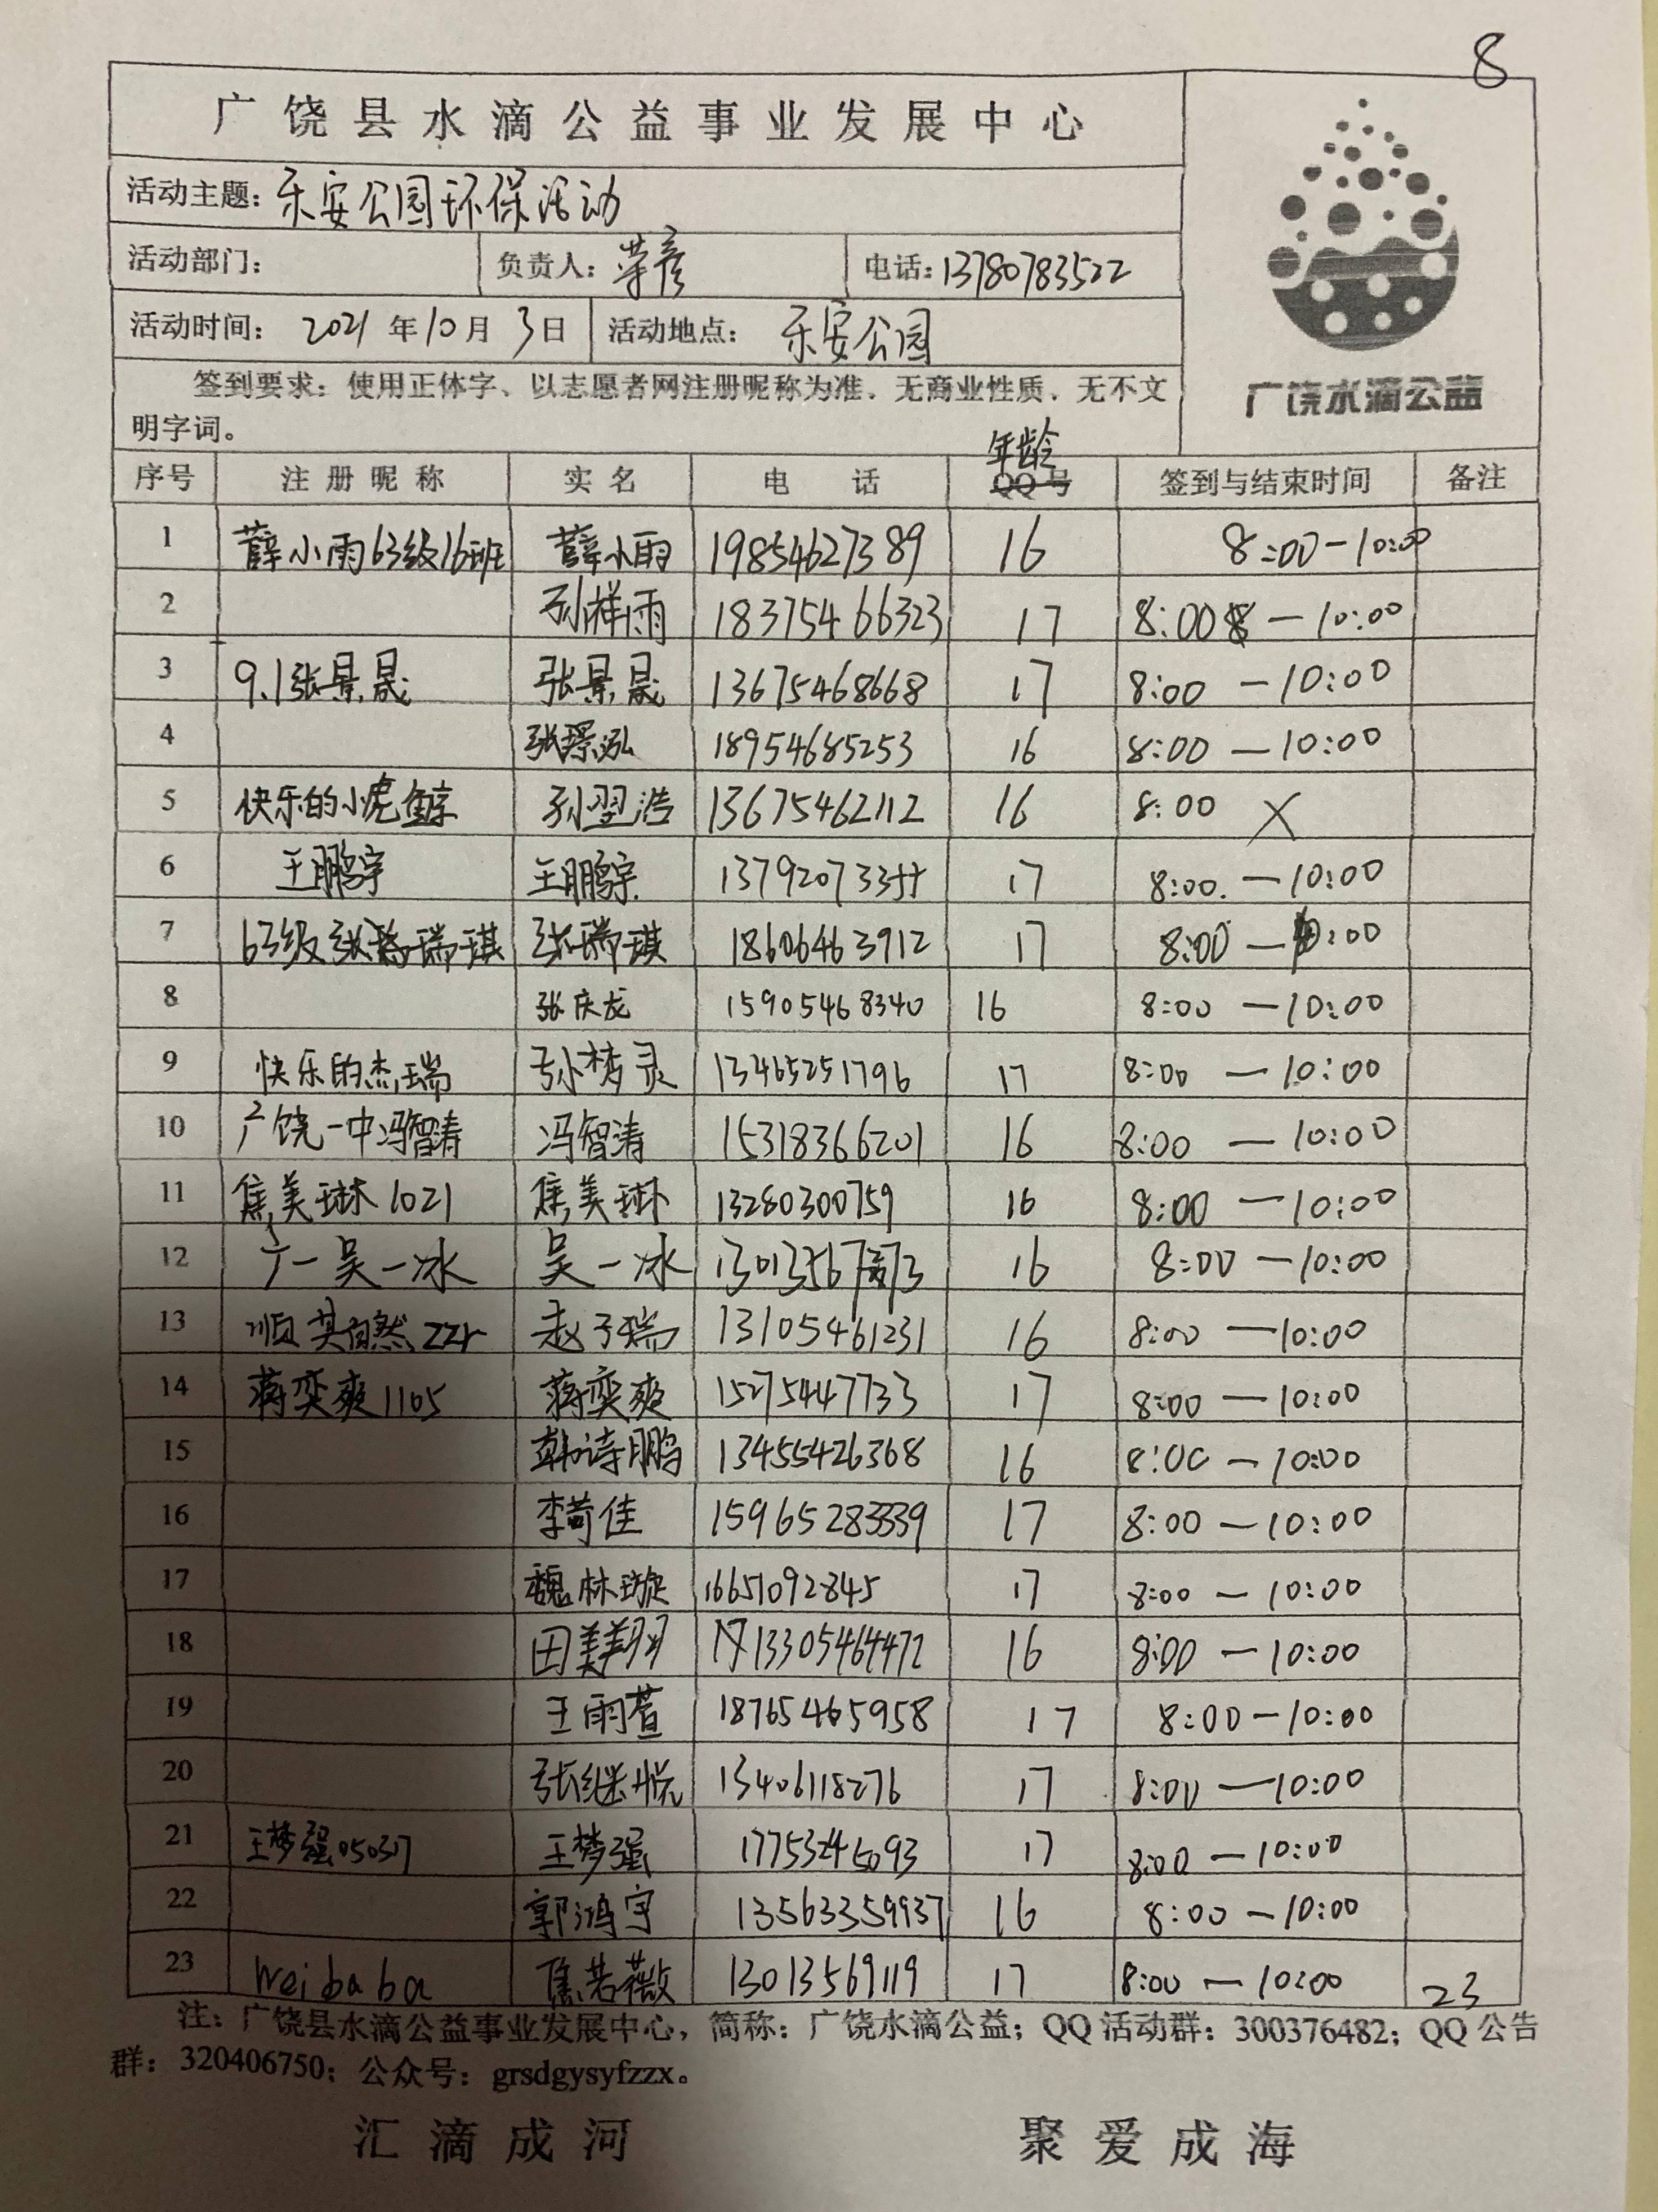 8
广饶县水滴公益事业发展中心
活动主题：乐安公园环保活动
活动部门： 负责人：荣彦 电话：13780783522
活动时间：2021年10月3日 活动地点：乐安公园
广饶水滴公益
签到要求：使用正体字、以志愿者网注册昵称为准，无商业性质，无不文
明字词。
年龄
序号 注册昵称 实名 电话 QQ号 签到与结束时间 备注
1 薛小雨63级16班 薛小雨 19854627389 16 8:00-10:00
2 孙祥雨 18375466323 17 8:00 — 10:00
3 9.1张景晟 张景晟 13675468668 17 8:00 — 10:00
4 张璟泓 18954685253 16 8:00 — 10:00
5 快乐的小虎鲸 孙翌浩 13675462112 16 8:00 X
6 王鹏宇 王鹏宇 17 8:00. — 10:00
7 63级张瑞琪 张瑞琪 18606463912 17 8:00 — 10:00
8 张庆龙 15905468340 16 8:00 — 10:00
9 快乐的杰瑞 孙梦灵 13465251796 17 8:00 — 10:00
10 广饶一中冯智涛 冯智涛 15318366201 16 8:00 — 10:00
11 焦美琳1021 焦美琳 13280300759 16 8:00 — 10:00
12 广一吴一冰 吴一冰 16 8:00 — 10:00
13 顺其自然zzr 赵子瑞 13105461231 16 8:00 — 10:00
14 蒋奕爽1105 蒋奕爽 15275447733 17 8:00 — 10:00
15 韩诗鹏 13455426368 16 8:00 — 10:00
16 李苛佳 15965283339 17 8:00 — 10:00
17 魏林璇 16651092845 17 8:00 — 10:00
18 田美翔 13305464472 16 8:00 — 10:00
19 王雨萱 18765465958 17 8:00 — 10:00
20 张继悦 13406118276 17 8:00 — 10:00
21 王梦强050317 王梦强 17 8:00 — 10:00
22 郭鸿宇 13563359937 16 8:00 — 10:00
23 weibaba 焦若薇 13013569119 17 8:00 — 10:00 23
注：广饶县水滴公益事业发展中心，简称：广饶水滴公益；QQ活动群：300376482；QQ公告
群：320406750；公众号：grsdgysyfzzx。
汇滴成河 聚爱成海